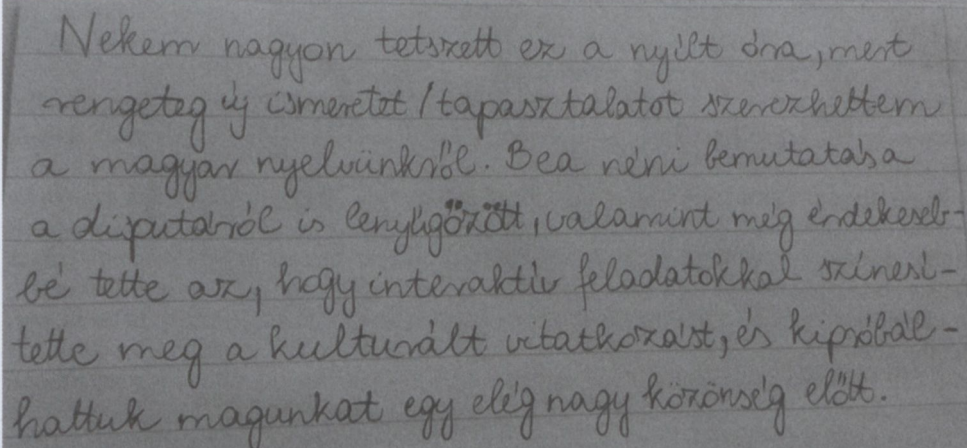 Nekem nagyon tetszett ez a nyílt óra, mert
rengeteg új ismeretet / tapasztalatot szerezhettem
a magyar nyelvünkről. Bea néni bemutatása
a disputáról is lenyűgözött, valamint még érdekeseb-
bé tette az, hogy interaktív feladatokkal színesí-
tette meg a kulturált vitatkozást, és kipróbál-
hattuk magunkat egy elég nagy közönség előtt.